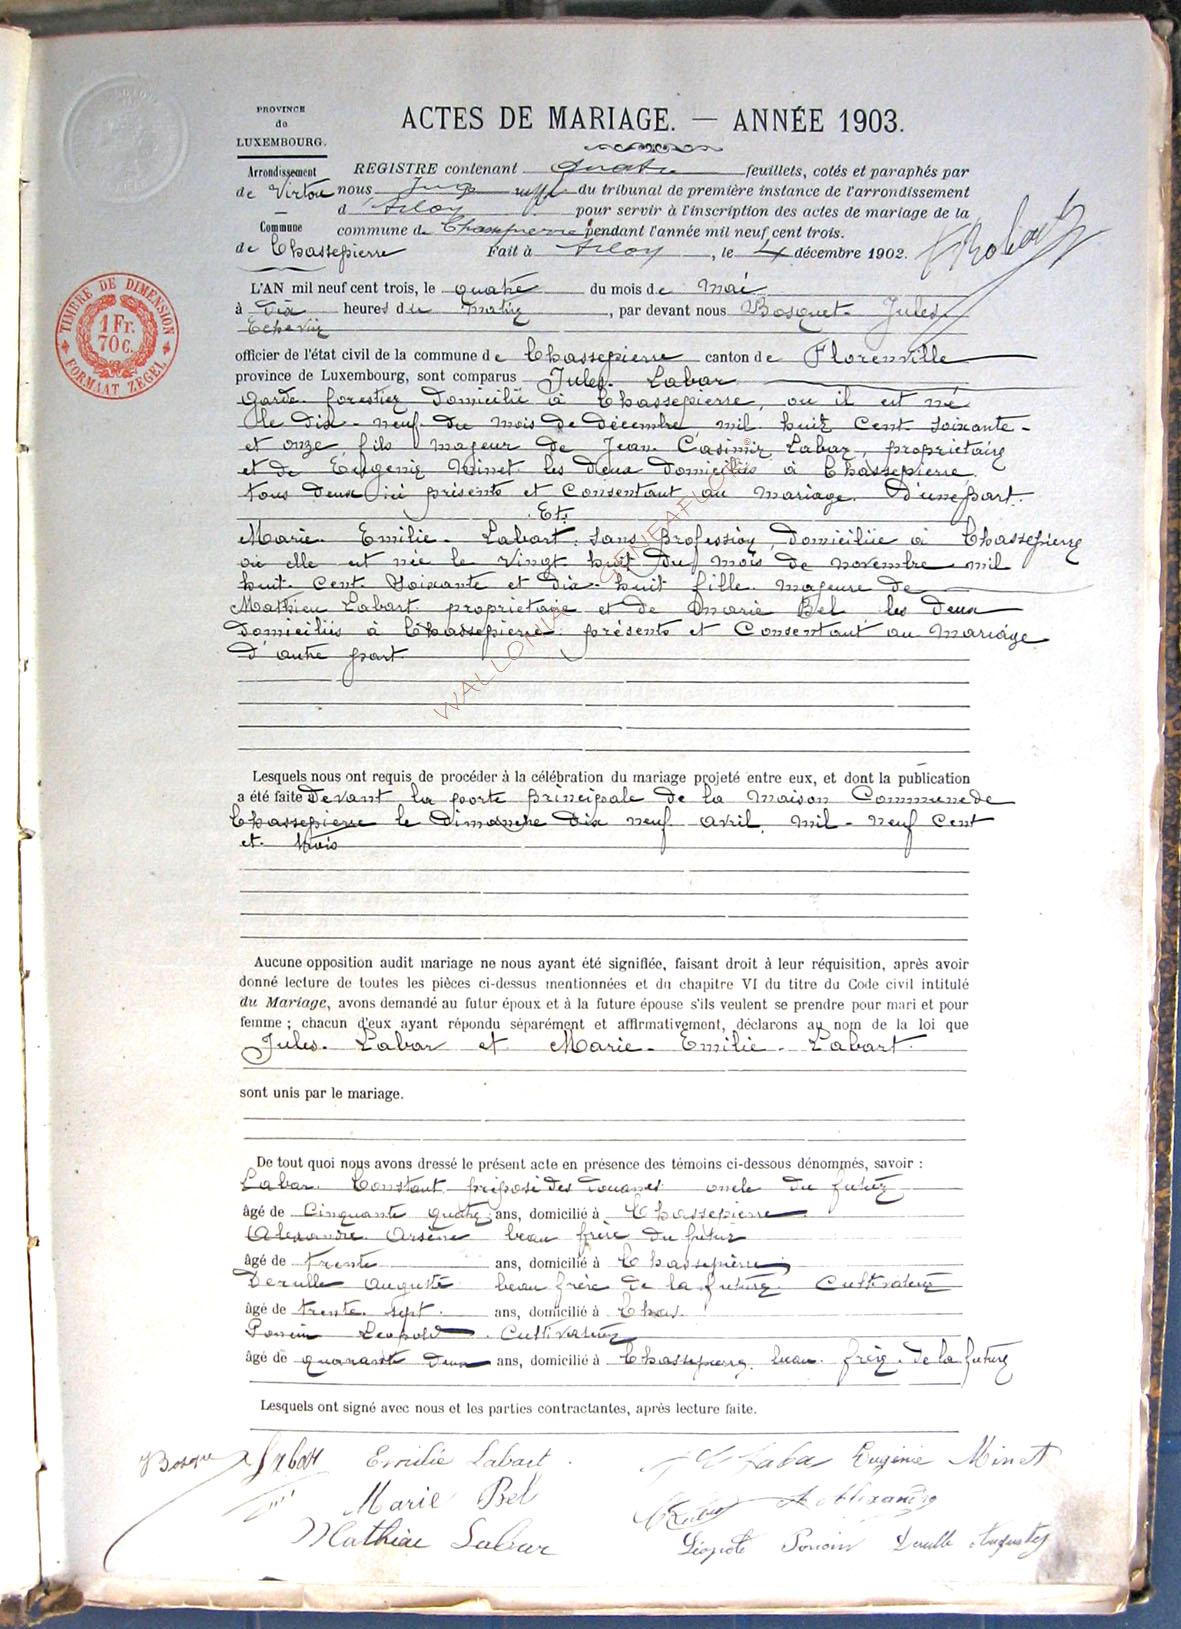 PROVINCE
de
LUXEMBOURG.
Arrondissement
de Virton
Commune
de Chassepierre
ACTES DE MARIAGE. — ANNÉE 1903.
REGISTRE contenant quatre feuillets, cotés et paraphés par
nous Juge du tribunal de première instance de l'arrondissement
d'Arlon pour servir à l'inscription des actes de mariage de la
commune de Chassepierre pendant l'année mil neuf cent trois.
Fait à Arlon, le 4 décembre 1902.
TIMBRE DE DIMENSION
1 Fr.
70 C.
FORMAAT ZEGEL
L'AN mil neuf cent trois, le quatre du mois de Mai
à dix heures du matin, par devant nous Bosquet Jules
Echevin
officier de l'état civil de la commune de Chassepierre canton de Florenville
province de Luxembourg, sont comparus Jules Labar
Garde forestier domicilié à Chassepierre, où il est né
le dix-neuf du mois de décembre mil huit cent soixante-
et onze fils majeur de Jean Casimir Labar, propriétaire
et de Eugénie Minet les deux domiciliés à Chassepierre
tous deux ici présents et consentant au mariage. D'une part.
Et
Marie Emilie Labart sans profession domiciliée à Chassepierre
où elle est née le vingt huit du mois de novembre mil
huit cent soixante et dix-huit fille majeure de
Mathieu Labart propriétaire et de Marie Bel les deux
domiciliés à Chassepierre présents et consentant au mariage
d'autre part.
WALLONIA GENEAFLORE
Lesquels nous ont requis de procéder à la célébration du mariage projeté entre eux, et dont la publication
a été faite devant la porte principale de la maison Commune de
Chassepierre le dimanche dix neuf avril mil-neuf cent
et trois
Aucune opposition audit mariage ne nous ayant été signifiée, faisant droit à leur réquisition, après avoir
donné lecture de toutes les pièces ci-dessus mentionnées et du chapitre VI du titre du Code civil intitulé
du Mariage, avons demandé au futur époux et à la future épouse s'ils veulent se prendre pour mari et pour
femme ; chacun d'eux ayant répondu séparément et affirmativement, déclarons au nom de la loi que
Jules Labar et Marie-Emilie Labart
sont unis par le mariage.
De tout quoi nous avons dressé le présent acte en présence des témoins ci-dessous dénommés, savoir :
Labar Constant préposé des douanes oncle du futur
âgé de Cinquante quatre ans, domicilié à Chassepierre
Alexandre Arsène beau frère du futur
âgé de trente ans, domicilié à Chassepierre
Derulle Auguste beau frère de la future Cultivateur
âgé de trente sept ans, domicilié à Chas.
Ponoin Léopold Cultivateur
âgé de quarante deux ans, domicilié à Chassepierre beau frère de la future
Lesquels ont signé avec nous et les parties contractantes, après lecture faite.
Emilie Labart
Eugénie Minet
Marie Bel
A Alexandre
Mathieu Labar
Léopold Ponoin Derulle Auguste